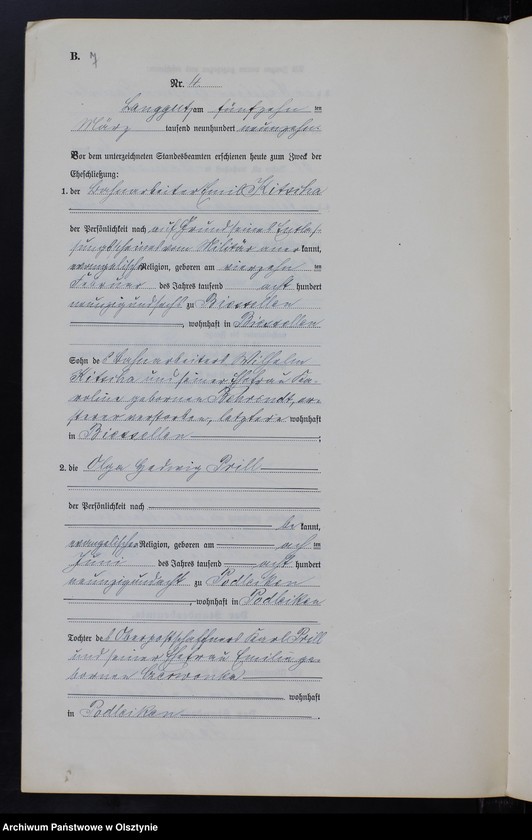 B. 7
Nr. 4.
Langgut, am fünfzehn ten
März tausend neunhundert neunzehn.
Vor dem unterzeichneten Standesbeamten erschienen heute zum Zweck der
Eheschließung:
1. der Bahnarbeiter Emil Kitscha
der Persönlichkeit nach auf Grund seines Entlas-
sungsscheines vom Militär aner kannt,
evangelischer Religion, geboren am vierzehn ten
Februar des Jahres tausend acht hundert
neunzigundsechs zu Biessellen
, wohnhaft in Biessellen
Sohn des Bahnarbeiters Wilhelm
Kitscha und seiner Ehefrau Ka-
roline geborenen Behrendt, er-
sterer verstorben, letztere wohnhaft
in Biessellen ;
2. die Olga Hedwig Prill
der Persönlichkeit nach
be kannt,
evangelischer Religion, geboren am ach ten
Juni des Jahres tausend acht hundert
neunzigundacht zu Podleiken
, wohnhaft in Podleiken
Tochter des Oberpostschaffners Karl Prill
und seiner Ehefrau Emilie ge-
borenen Czerwonka
wohnhaft
in Podleiken .
Archiwum Państwowe w Olsztynie